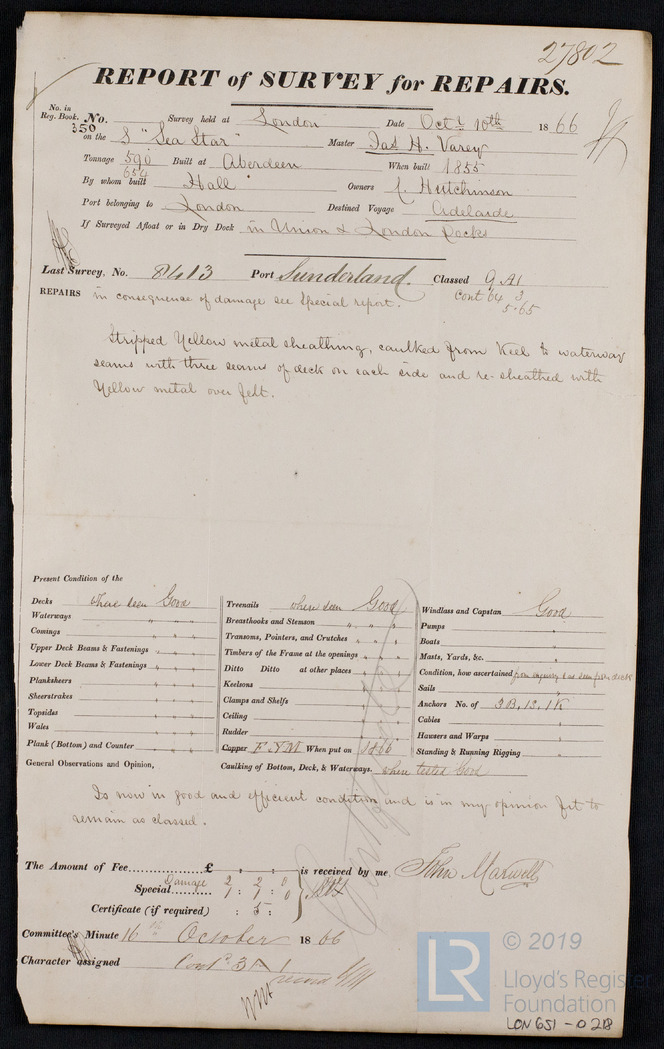 27802
REPORT of SURVEY for REPAIRS.
No. in Reg. Book. No. Survey held at London Date Octr 10th 1866
350 on the S "Sea Star" Master Jas H. Varey
Tonnage 590 Built at Aberdeen When built 1855
654
By whom built Hall Owners Hutchinson
Port belonging to London Destined Voyage Adelaide
If Surveyed Afloat or in Dry Dock in Union & London Docks
Last Survey, No. 8413 Port Sunderland. Classed 9 A1
Cont 64 3
5.65
REPAIRS in consequense of damage see Special report.
Stripped Yellow metal sheathing, caulked from Keel to waterway
seams with three seams of deck on each side and re-sheathed with
Yellow metal over felt.
Present Condition of the
Decks where seen Good
Waterways " " "
Comings " " "
Upper Deck Beams & Fastenings " " "
Lower Deck Beams & Fastenings " " "
Planksheers " " "
Sheerstrakes " " "
Topsides " " "
Wales " " "
Plank (Bottom) and Counter " " "
Treenails where seen Good
Breasthooks and Stemson " " "
Transoms, Pointers, and Crutches " " "
Timbers of the Frame at the openings " " "
Ditto Ditto at other places " " "
Keelsons
Clamps and Shelfs
Ceiling
Rudder
Copper F Y M When put on 1866
Caulking of Bottom, Deck, & Waterways. where tested Good
Windlass and Capstan Good
Pumps "
Boats "
Masts, Yards, &c. "
Condition, how ascertained from enquiry & as seen from deck
Sails "
Anchors No. of 3B, 1S, 1K
Cables "
Hawsers and Warps "
Standing & Running Rigging "
General Observations and Opinion,
Is now in good and efficient condition and is in my opinion fit to
remain as classed.
The Amount of Fee £ : : is received by me, John Maxwell
Special Damage 2 : 2 : 0
1 : 1 : 0
Certificate (if required) : 5 :
Committee's Minute 16th October 1866
Character assigned Contd 3 A 1
LR © 2019
Lloyd's Register
Foundation
LON651-0218